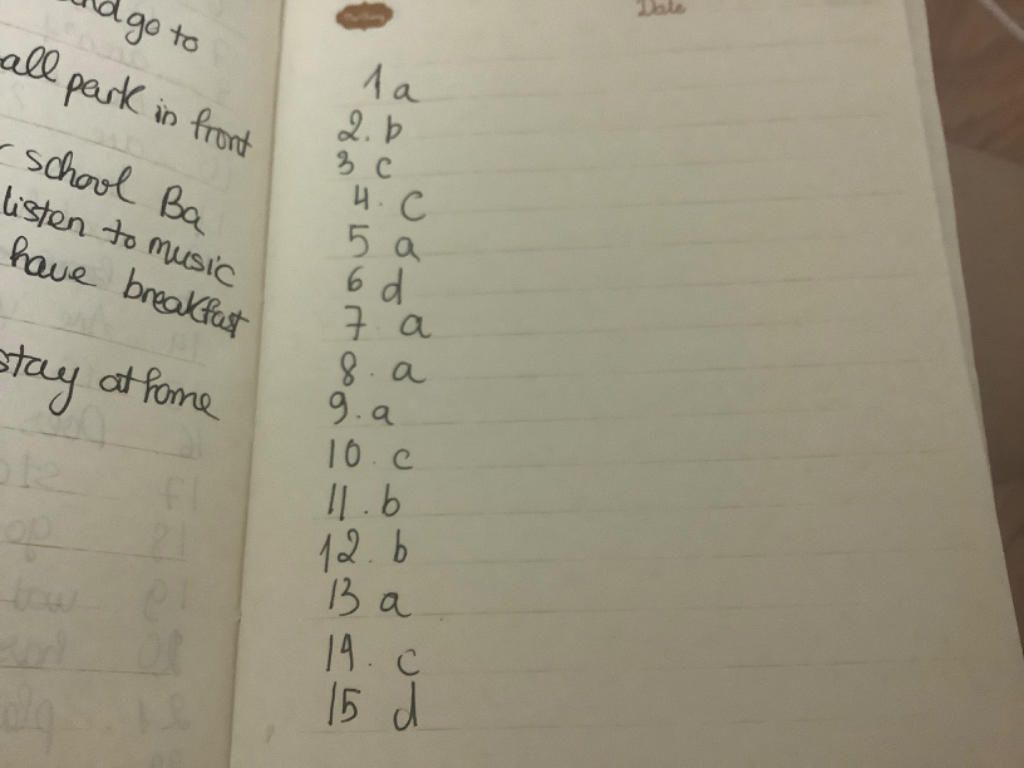 and go to
all park in front
school Ba
listen to music
have breakfast
stay at home
Date
1 a
2. b
3 c
4. c
5 a
6 d
7 a
8. a
9. a
10. c
11. b
12. b
13 a
14. c
15 d